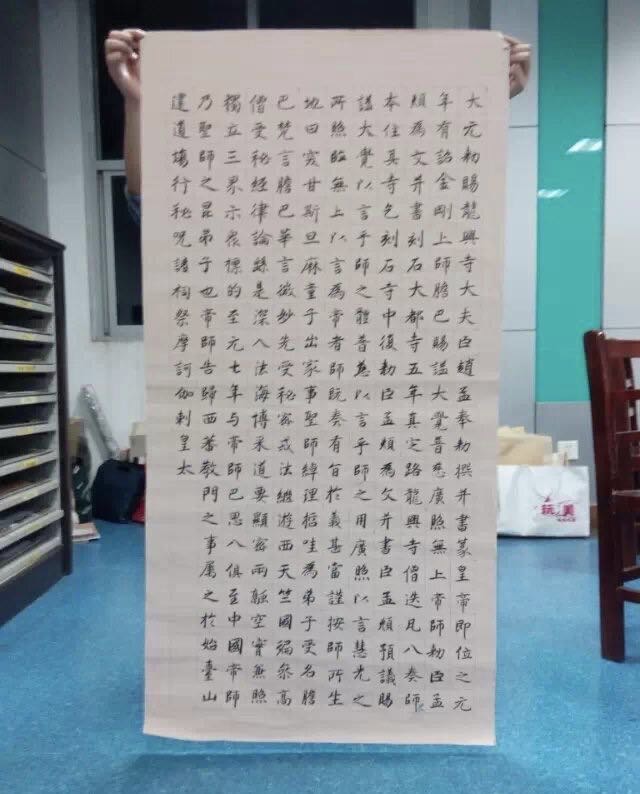 大元勅賜龍興寺大夫臣趙孟奉勅撰并書篆皇帝即位之元
年有詔金剛上師膽巴賜謚大覺普慈廣照無上帝師勅臣孟
頫為文并書刻石大都寺五年真定路龍興寺僧迭凡八奏師
本住其寺乞刻石寺中復勅臣孟頫為文并書臣孟頫預議賜
謚大覺以言乎師之體普慈以言乎師之用廣照以言慧光之
所照臨無上以言為帝者師既奏有旨於義甚當謹按師所生
地曰突甘斯旦麻童子出家事聖師綽理哲哇為弟子受名膽
巴梵言膽巴華言微妙先受秘密戒法繼游西天竺國徧參高
僧受秘經律論繇是深入法海博采道要顯密兩融空實無照
獨立三界示眾標的至元七年与帝師巴思八俱至中國帝師
乃聖師之昆弟子也帝師告歸西蕃教門之事屬之於始臺山
建道場行秘咒諸祠祭摩訶伽剌皇太
玩美